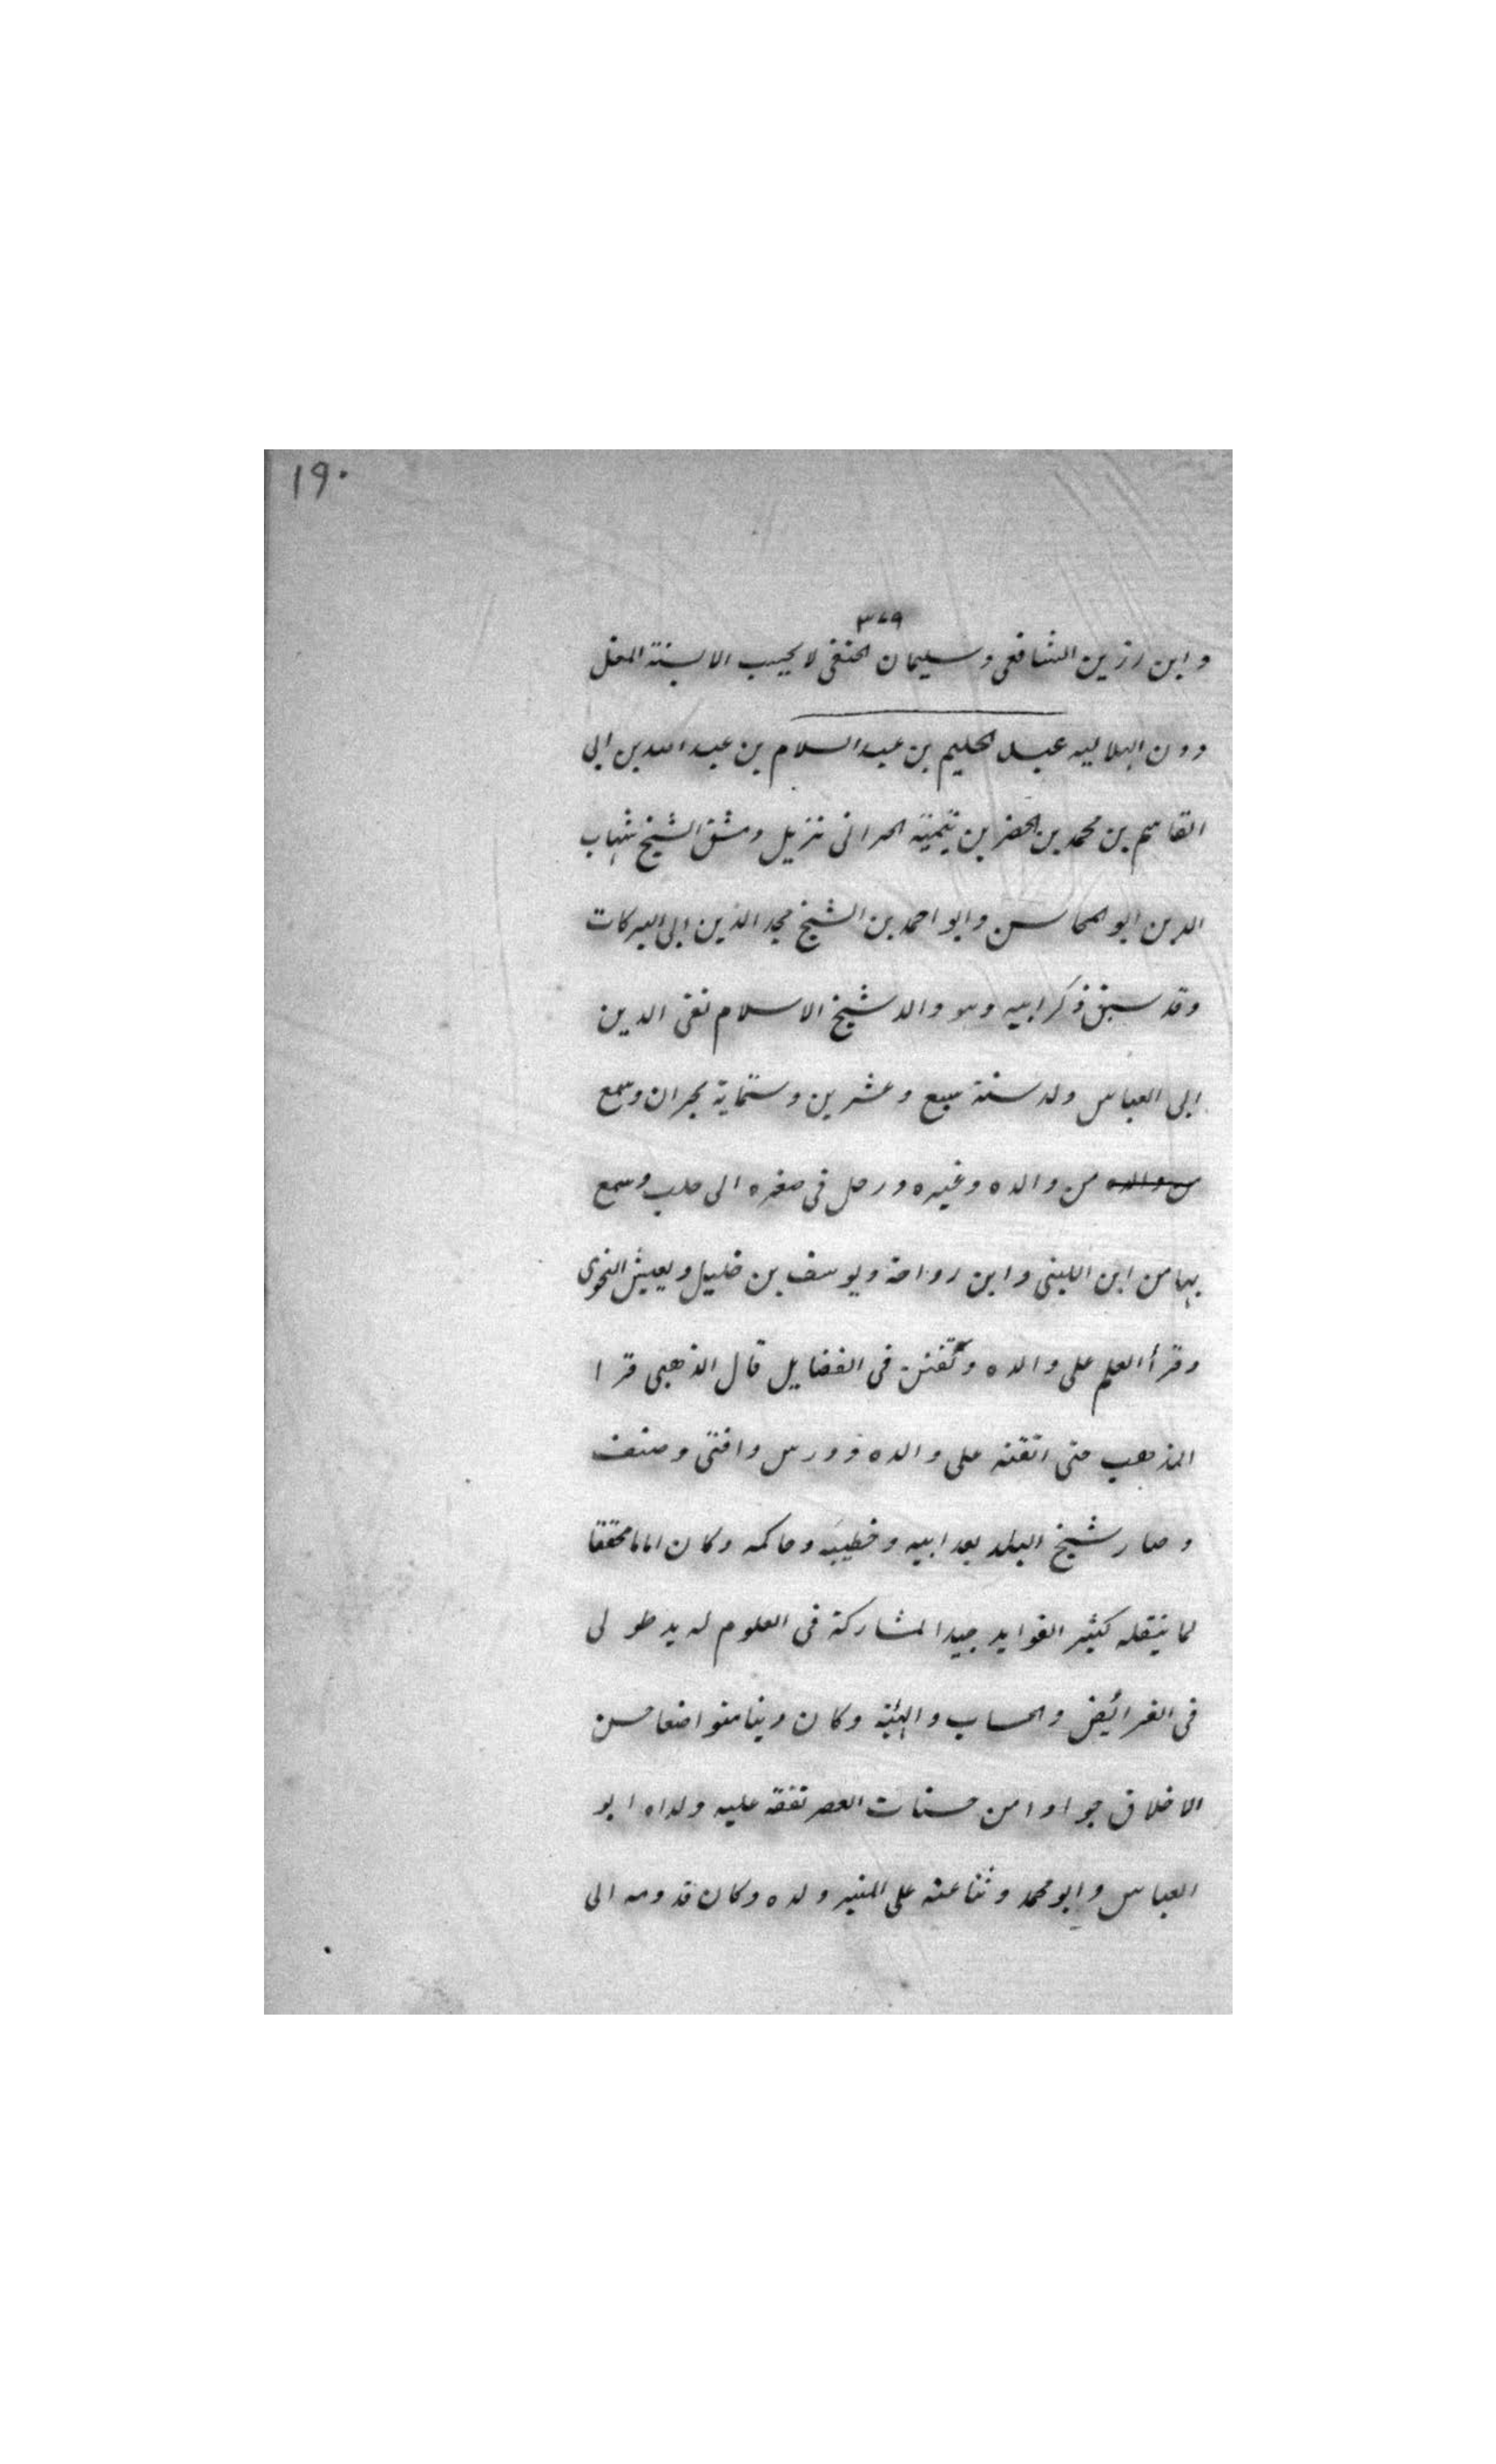 ١٩٠
٣٧٩
وابن رزين الشافعى وسليمان الحنفى لا يحيب الا لسنة المغل
دون الهلاليه عبد الحليم بن عبد السلام بن عبد الله بن ابى
القاسم بن محمد بن الخضر بن تيميّة الحرانى نزيل دمشق الشيخ شهاب
الدين ابو المحاسن وابو احمد بن الشيخ مجد الدين ابى البركات
وقد سبق ذكر ابيه وهو والد شيخ الاسلام تقى الدين
ابى العباس ولد سنة سبع وعشرين وستماية بحران وسمع
من والده من والده وغيره ورحل فى صغره الى حلب وسمع
بها من ابن اللتى وابن رواحة ويوسف بن خليل ويعيش النحوى
وقرأ العلم على والده وتفنن فى الفضايل قال الذهبى قرا
المذهب حتى اتقنه على والده ودرس وافتى وصنف
وصار شيخ البلد بعد ابيه وخطيبه وحاكمه وكان اماما محققا
لما ينقله كثير الفوايد جيد المشاركة فى العلوم له يد طولى
فى الفرائيض والحساب والهئية وكان دينا متواضعا حسن
الاخلاق جوادا من حسنات العصر تفقه عليه ولداه ابو
العباس وابو محمد وثنا عنه على المنبر ولده وكان قدومه الى